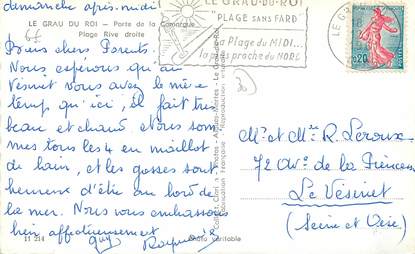 dimanche après-midi
LE GRAU DU ROI - Porte de la Camargue
Plage Rive droite
Bien chers Parents.
Nous espérons qu'au
Vésinet vous avez le même
temps qu'ici, il fait très
beau et chaud. Nous som
mes tous les 4 en maillot
de bain, et les gosses sont
heureux d'être au bord de
la mer. Nous vous embrassons
bien affectueusement
Guy
11 214
Photo véritable
LE GRAU-DU-ROI
PLAGE SANS FARD
la Plage du MIDI...
la plus proche du NORD
LE GRAU
0,20
Mr et Mme R. Leroux
72 Av. de la Princesse
Le Vésinet
(Seine et Oise)